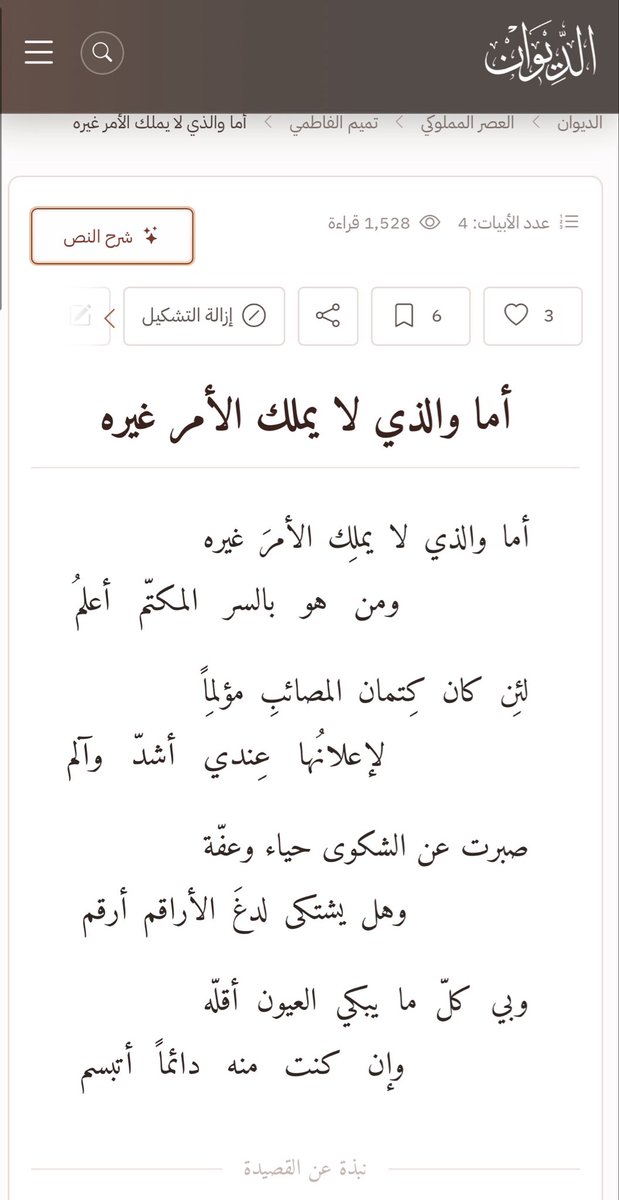 الدِّيوَان
الديوان > العصر المملوكي > تميم الفاطمي > أما والذي لا يملك الأمر غيره
عدد الأبيات: 4 1,528 قراءة
شرح النص
3 6 إزالة التشكيل
أما والذي لا يملك الأمر غيره
أما والذي لا يملِك الأمرَ غيره
ومن هو بالسر المكتّم أعلمُ
لئِن كان كِتمان المصائبِ مؤلِماً
لإعلانُها عِندي أشدّ وآلم
صبرت عن الشكوى حياء وعفّة
وهل يشتكى لدغَ الأراقم أرقم
وبي كلّ ما يبكي العيون أقلّه
وإن كنت منه دائماً أتبسم
نبذة عن القصيدة